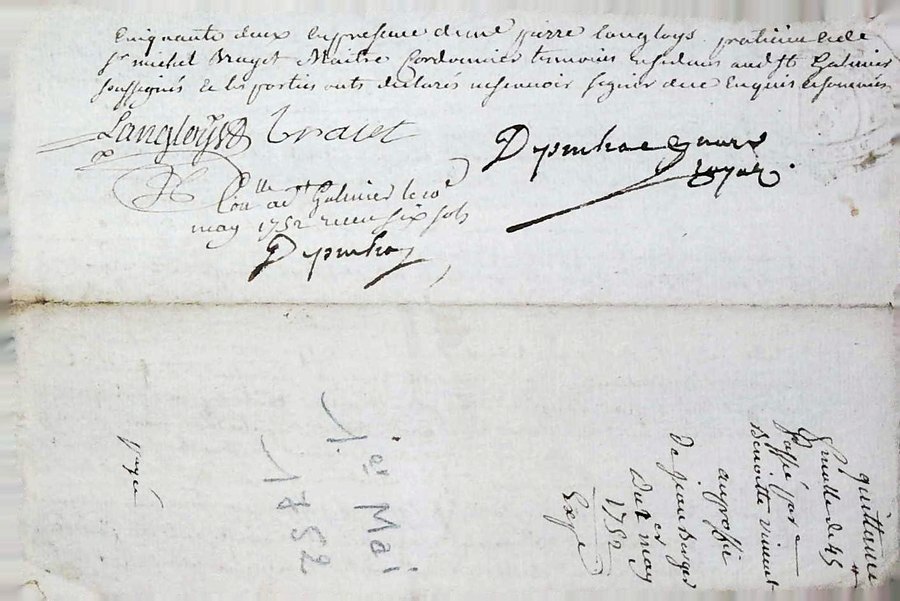 Cinquante deux en presence de me pierre Langloys praticien et de
Sr michel Bruyet Maitre Cordonnier temoins residens audt St Galmier
soussignés et les parties onts declarés ne scavoir signer de ce enquis et sommés
Langloys Bruiet
Depunhac
royal
Con lle a St Galmier le 10e
may 1752 receu six sols
Depunhac
quittance
de 45
passé par
Benoitte vincent
au proffit
de jean Berger
Du 1er may
1752
Exp
1.er Mai
1752
payé